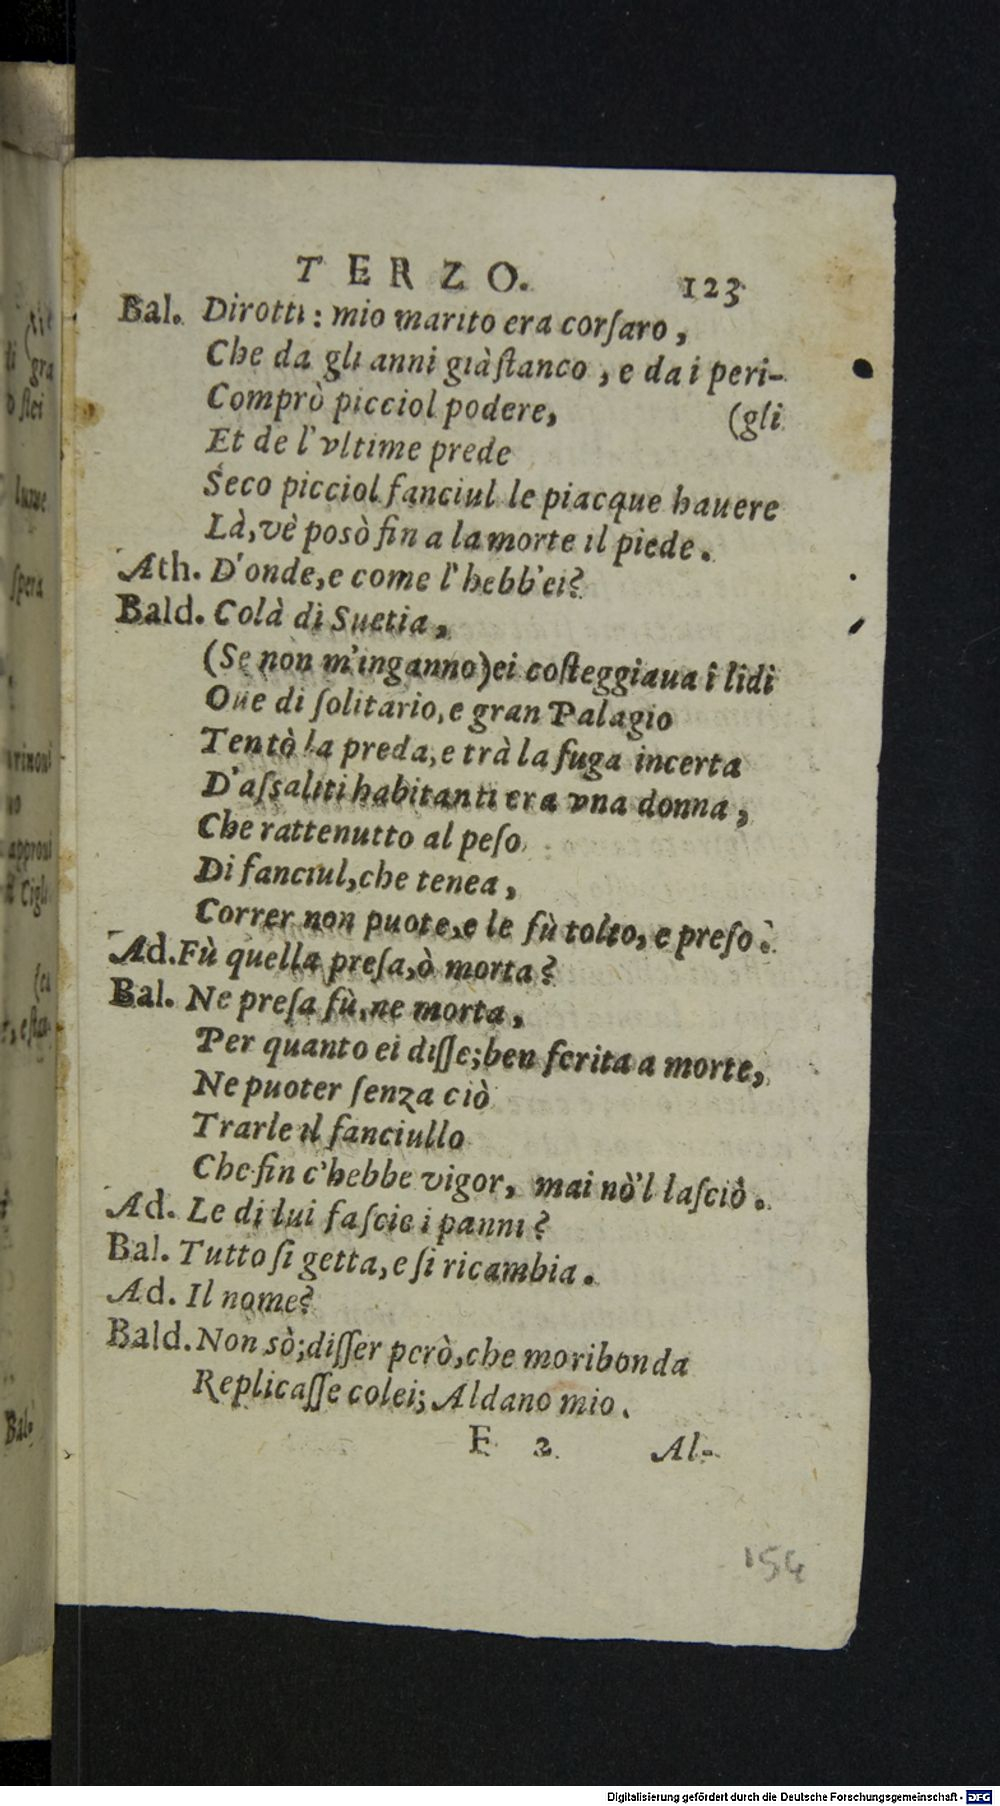 TERZO. 123
Bal. Dirotti: mio marito era corſaro,
Che da gli anni già ſtanco, e da i peri-
Comprò picciol podere, (gli
Et de l'vltime prede
Seco picciol fanciul le piacque hauere
Là, vè posò fin a la morte il piede.
Ath. D'onde, e come l'hebb'ei?
Bald. Colà di Suetia,
(Se non m'inganno) ei coſteggiaua i lidi
Oue di ſolitario, e gran Palagio
Tentò la preda, e trà la fuga incerta
D'aſsaliti habitanti era vna donna,
Che rattenutto al peſo
Di fanciul, che tenea,
Correr non puote, e le fù tolto, e preſo.
Ad. Fù quella preſa, ò morta?
Bal. Ne preſa fù, ne morta,
Per quanto ei diſſe; ben ferita a morte,
Ne puoter ſenza ciò
Trarle il fanciullo
Che fin c'hebbe vigor, mai nò'l laſciò.
Ad. Le di lui faſcie i panni?
Bal. Tutto ſi getta, e ſi ricambia.
Ad. Il nome?
Bald. Non sò; diſſer però, che moribonda
Replicaſſe colei; Aldano mio.
F 2 Al-
154
Digitalisierung gefördert durch die Deutsche Forschungsgemeinschaft - DFG